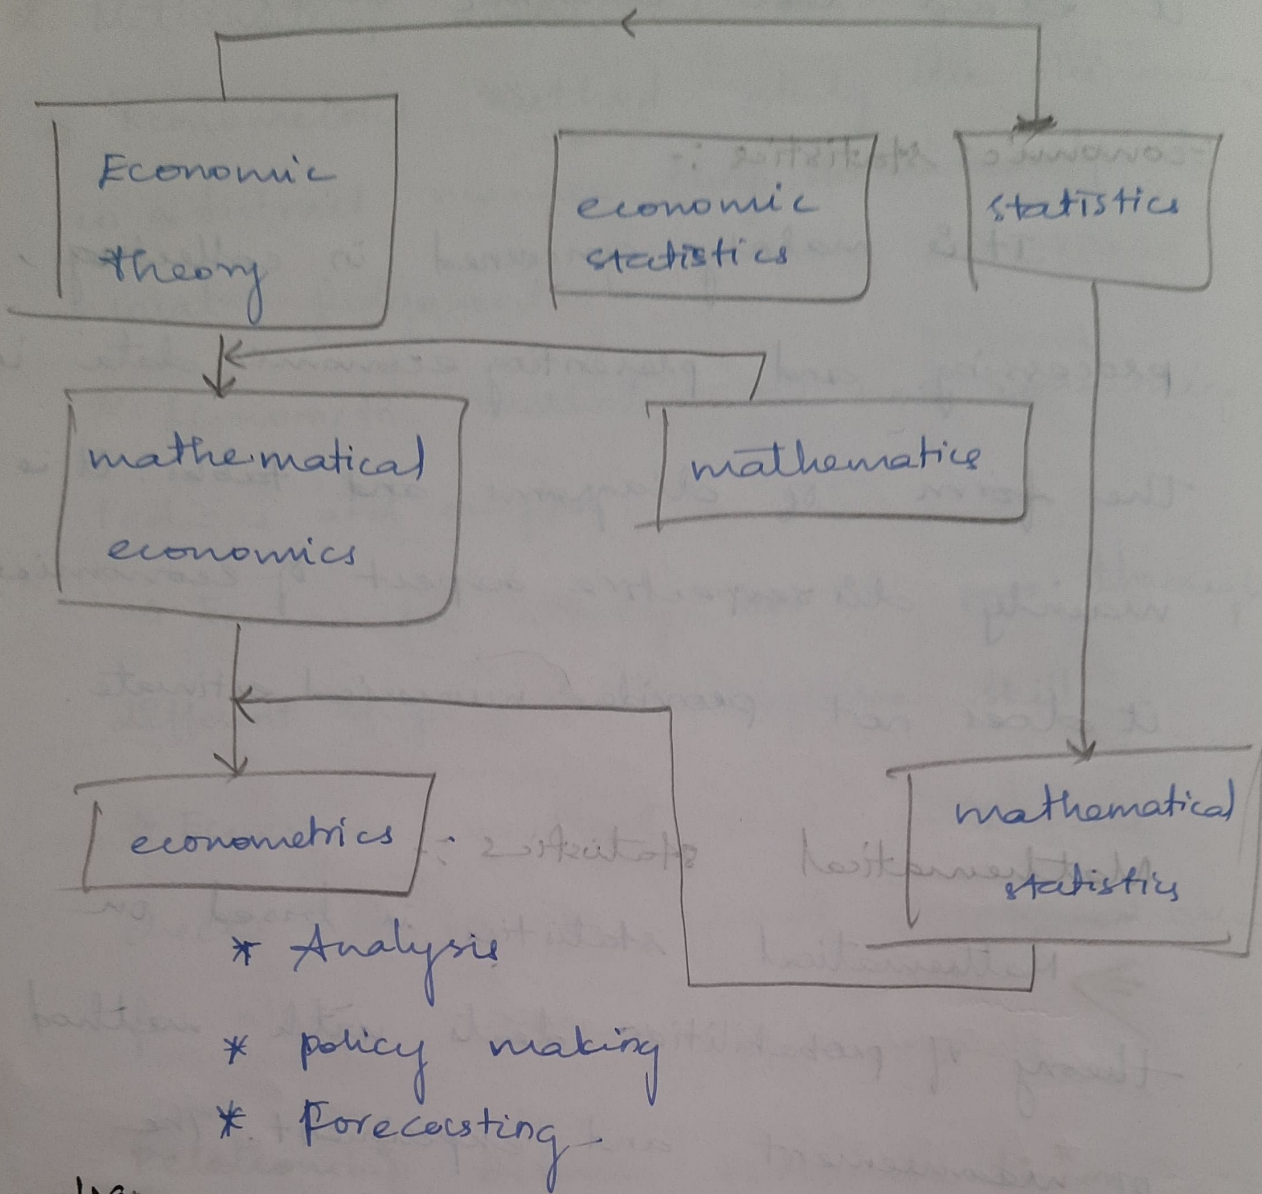 Economic
theory
economic
statistics
statistics
mathematical
economics
mathematics
econometrics
mathematical
statistics
* Analysis
* policy making
* Forecasting